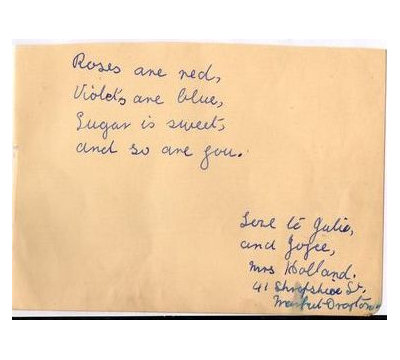 Roses are red,
Violets are blue,
Sugar is sweet,
and so are you.
Love to Julie,
and Joyce,
Mrs Holland.
41 Shropshire St,
Market-Drayton